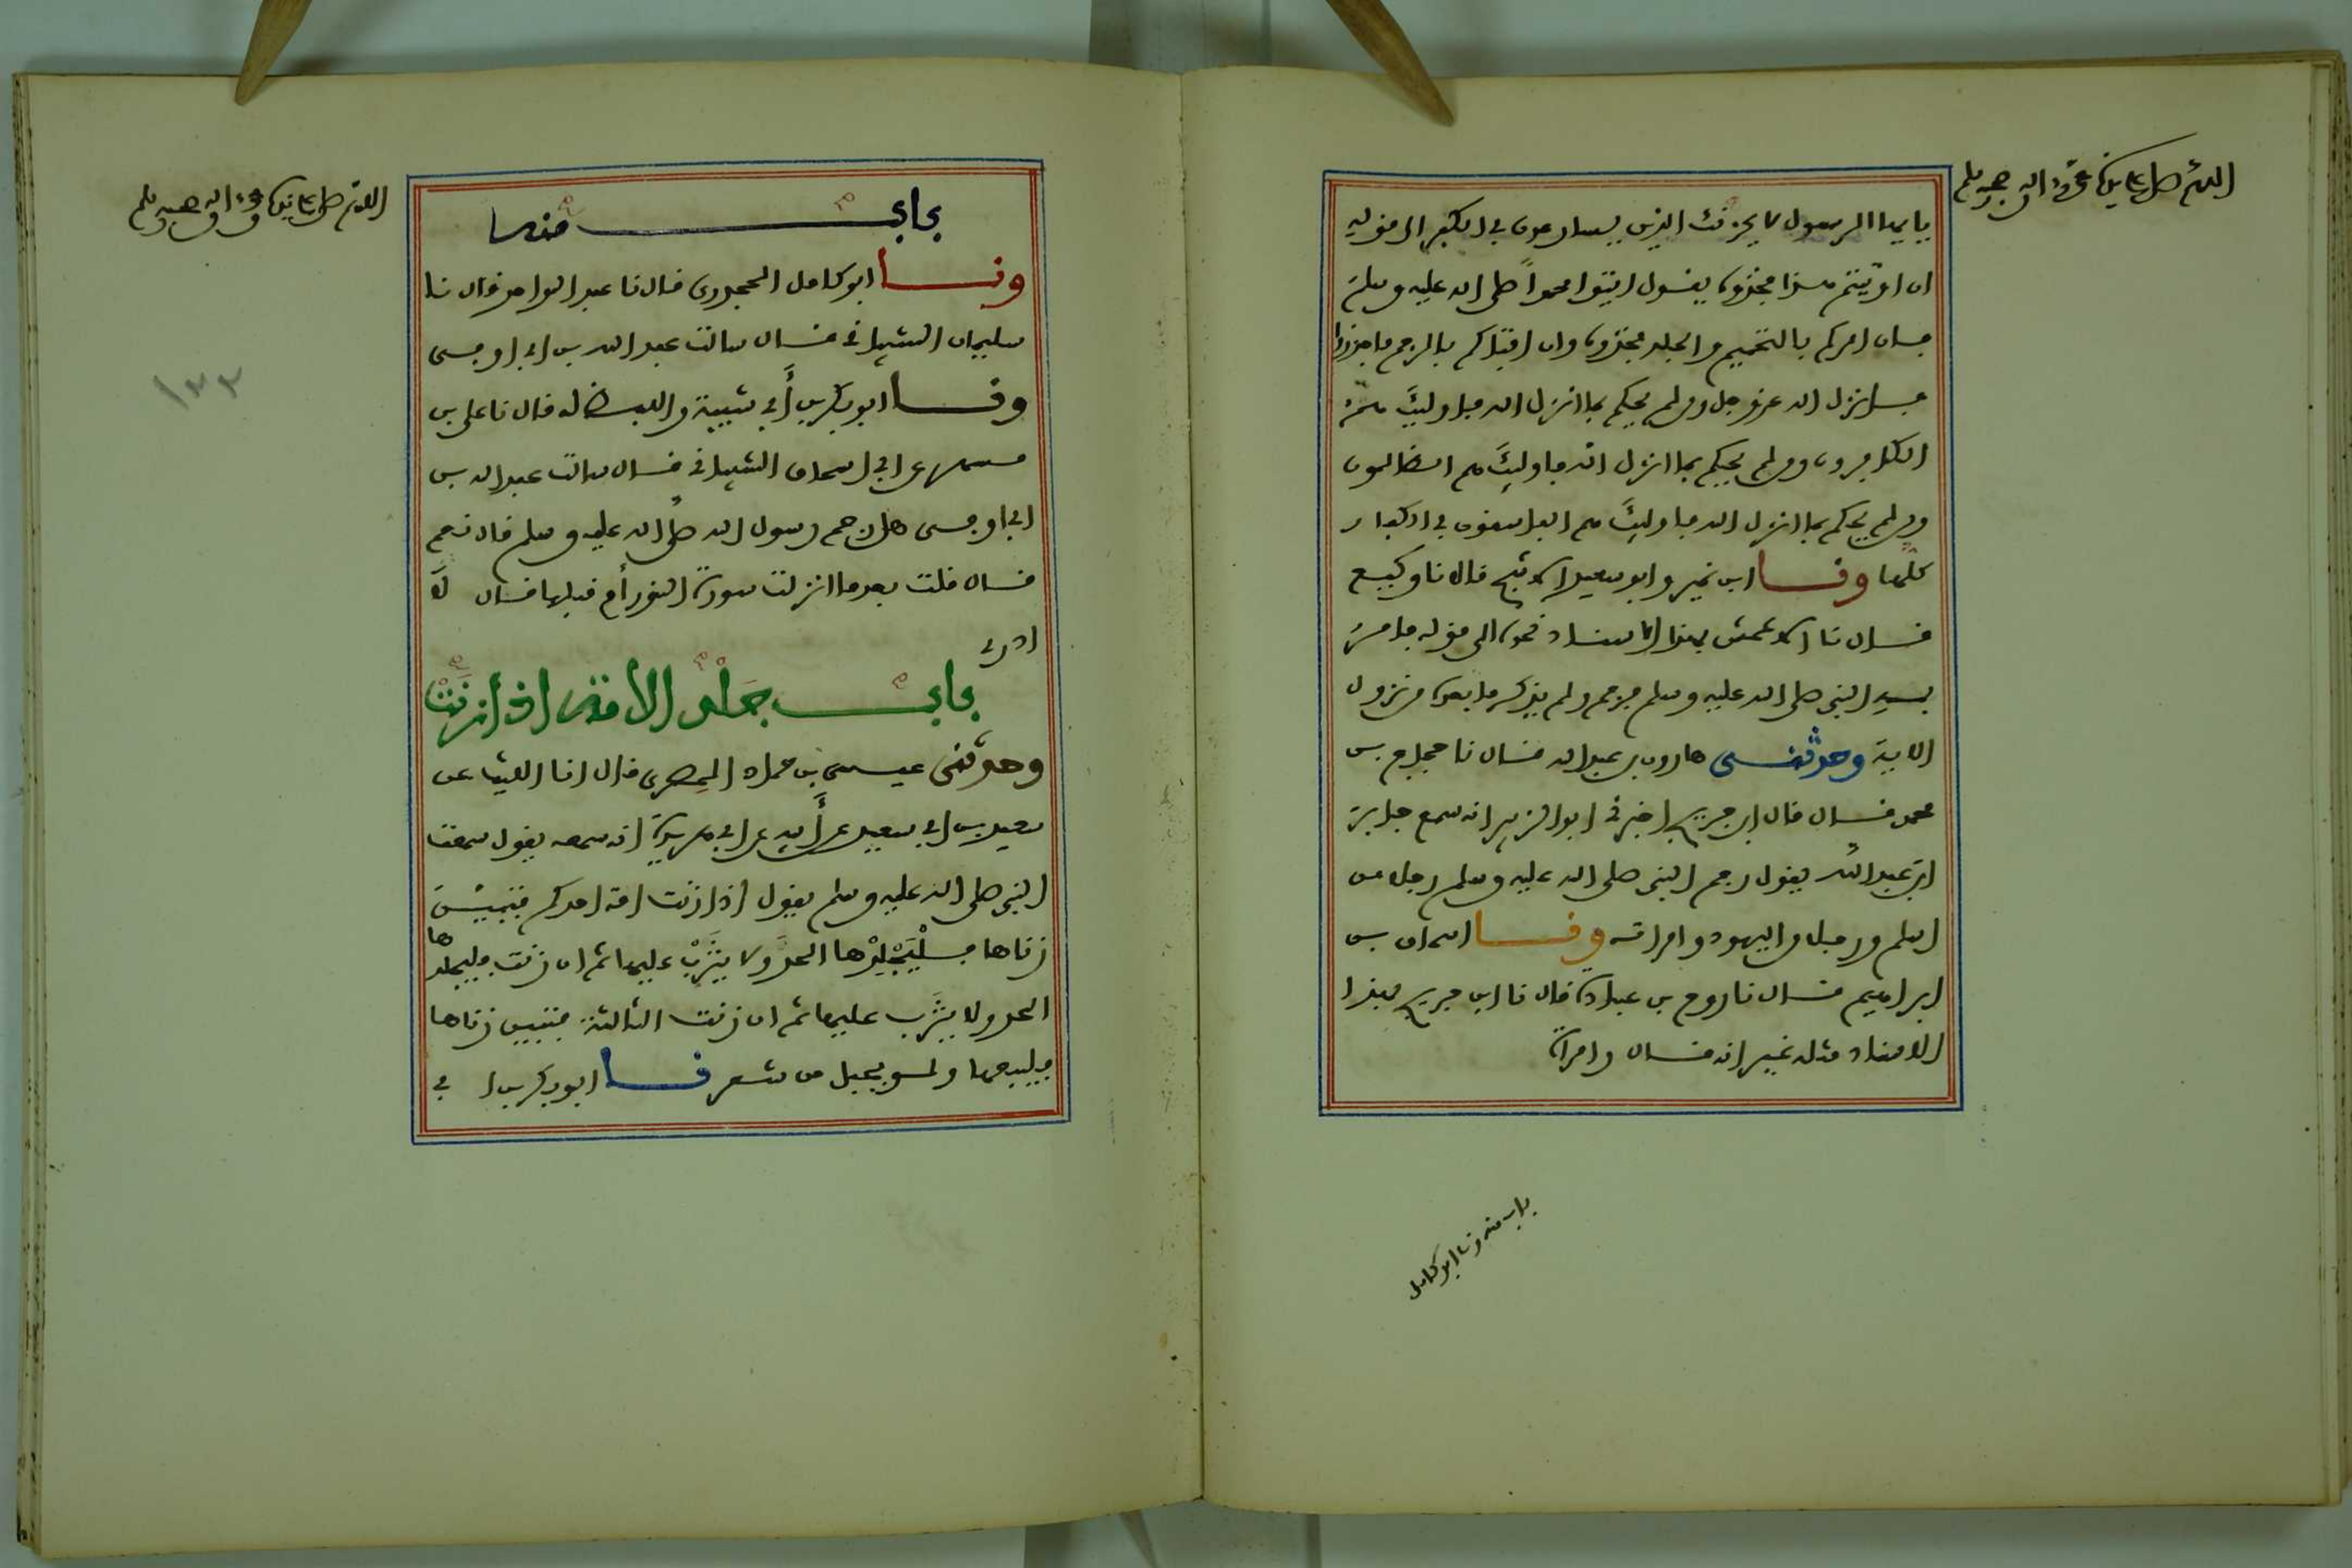 اللهم صل على نبينا محمد وآله وصحبه وسلم
يايها الرسول لا يحزنك الذين يسارعون في الكفر الى قوله
ان اوتيتم هذا فخذوه يقول ايتوا محمدا صلى الله عليه وسلم
فان امركم بالتحميم والجلد فخذوه وان افتاكم بالرجم فاحذروا
فانزل الله عز وجل ومن لم يحكم بما انزل الله فاوليك هم
الكافرون ومن لم يحكم بما انزل الله فاوليك هم الظالمون
ومن لم يحكم بما انزل الله فاوليك هم الفاسقون في الكفار
كلها ونا ابن نمير وابو سعيد الاشج قال نا وكيع
قال نا الاعمش بهذا الاسناد نحوه الى قوله فامر
به النبي صلى الله عليه وسلم فرجم ولم يذكر ما بعده من نزول
الاية وحدثني هارون بن عبد الله قال نا حجاج بن
محمد قال قال ابن جريج اخبرني ابو الزبير انه سمع جابر
ابن عبد الله يقول رجم النبي صلى الله عليه وسلم رجلا من
اسلم ورجلا من اليهود وامراته ونا اسحاق بن
ابراهيم قال نا روح بن عبادة قال نا ابن جريج بهذا
الاسناد مثله غير انه قال وامراة
باب منه ونا ابو كامل
اللهم صل على نبينا محمد وآله وصحبه وسلم
١٣٣
باب منه
ونا ابو كامل الجحدري قال نا عبد الواحد قال نا
سليمان الشيباني قال سالت عبد الله بن ابي اوفى
ونا ابو بكر بن أبي شيبة واللفظ له قال نا علي بن
مسهر عن ابي اسحاق الشيباني قال سالت عبد الله بن
ابي اوفى هل رجم رسول الله صلى الله عليه وسلم قال نعم
قال قلت بعد ما انزلت سورة النور أم قبلها قال لا
ادري
باب جلد الأمة اذا زنت
وحدثني عيسى بن حماد المصري قال انا الليث عن
سعيد بن ابي سعيد عن أبيه عن ابي هريرة انه سمعه يقول سمعت
النبي صلى الله عليه وسلم يقول اذا زنت امة احدكم فتبين
زناها فليجلدها الحد ولا يثرب عليها ثم ان زنت فليجلدها
الحد ولا يثرب عليها ثم ان زنت الثالثة فتبين زناها
فليبعها ولو بحبل من شعر نا ابو بكر بن ابي